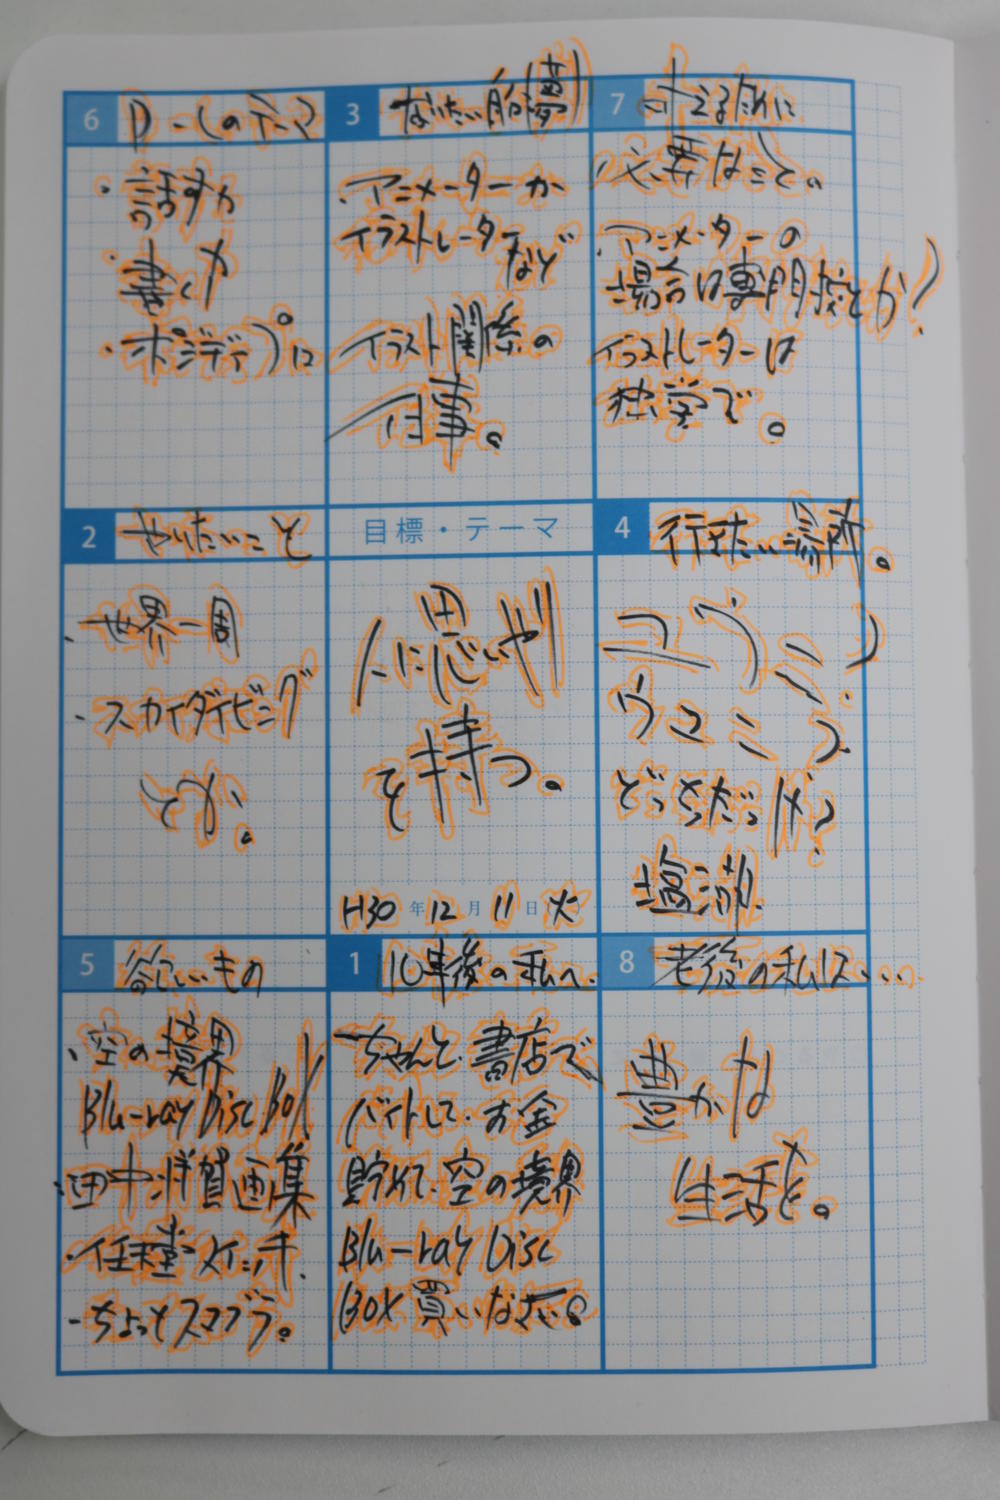 6
のテーマ
・話す力
・書く力
・ポジティブに
3 なりたい(夢)
・アニメーターか
イラストレーターなど
イラスト関係の
仕事。
7 叶えるために
必要なこと。
・アニメーターの
場合は専門校とか?
イラストレーターは
独学で。
2 やりたいこと
・世界一周
・スカイダイビング
とか。
目標・テーマ
人に思いやり
を持つ。
H30年12月11日(火)
4 行きたい場所。
ユウニ?
ウユニ?
どっちだっけ?
塩湖。
5 欲しいもの
・空の境界
Blu-ray Disc Box
・画集
・任天堂スイッチ.
・ちょっとスマブラ。
1 10年後の私へ.
ちゃんと書店で
バイトして、お金
貯めて、空の境界
Blu-ray Disc
BOX買いなさい。
8 老後の私は・・・.
豊かな
生活を。